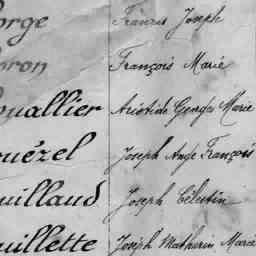 orge Francis Joseph
oron François Marie
ouallier Aristide Georges Marie
ouëzel Joseph Ange François
ouillaud Joseph Célestin
ouillette Joseph Mathurin Marie